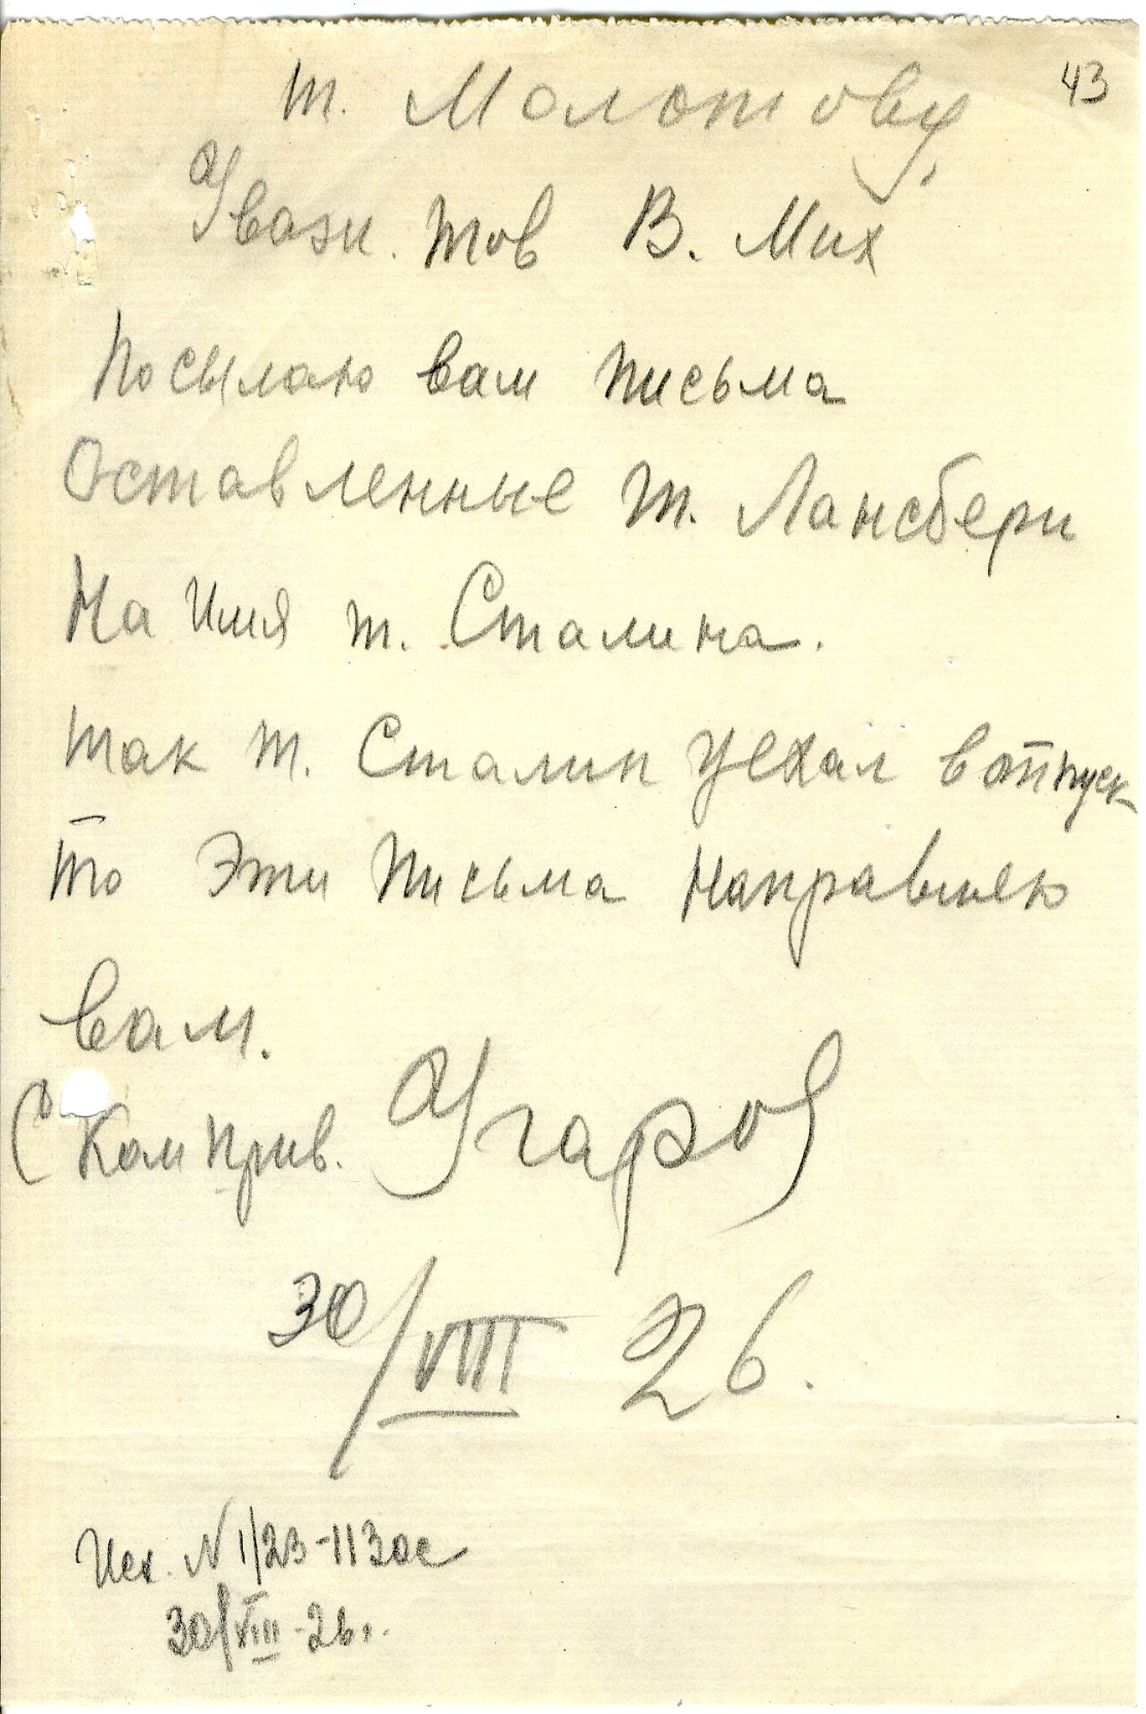 43
т. Молотову
Уваж. тов В. Мих
Посылаю вам письма
Оставленные т. Лансбери
На имя т. Сталина.
так т. Сталин уехал в отпуск
то эти письма направляю
вам.
С Ком прив. Угаров
30/VIII 26.
Исх. N 1/23-1130с
30/VIII-26г.